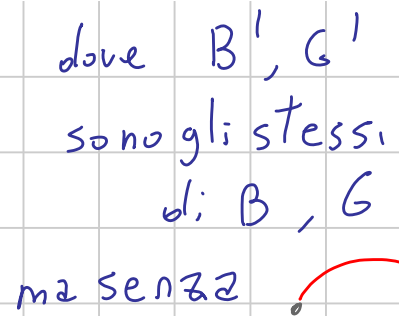 dove B', G'
sono gli stessi
di B, G
ma senza